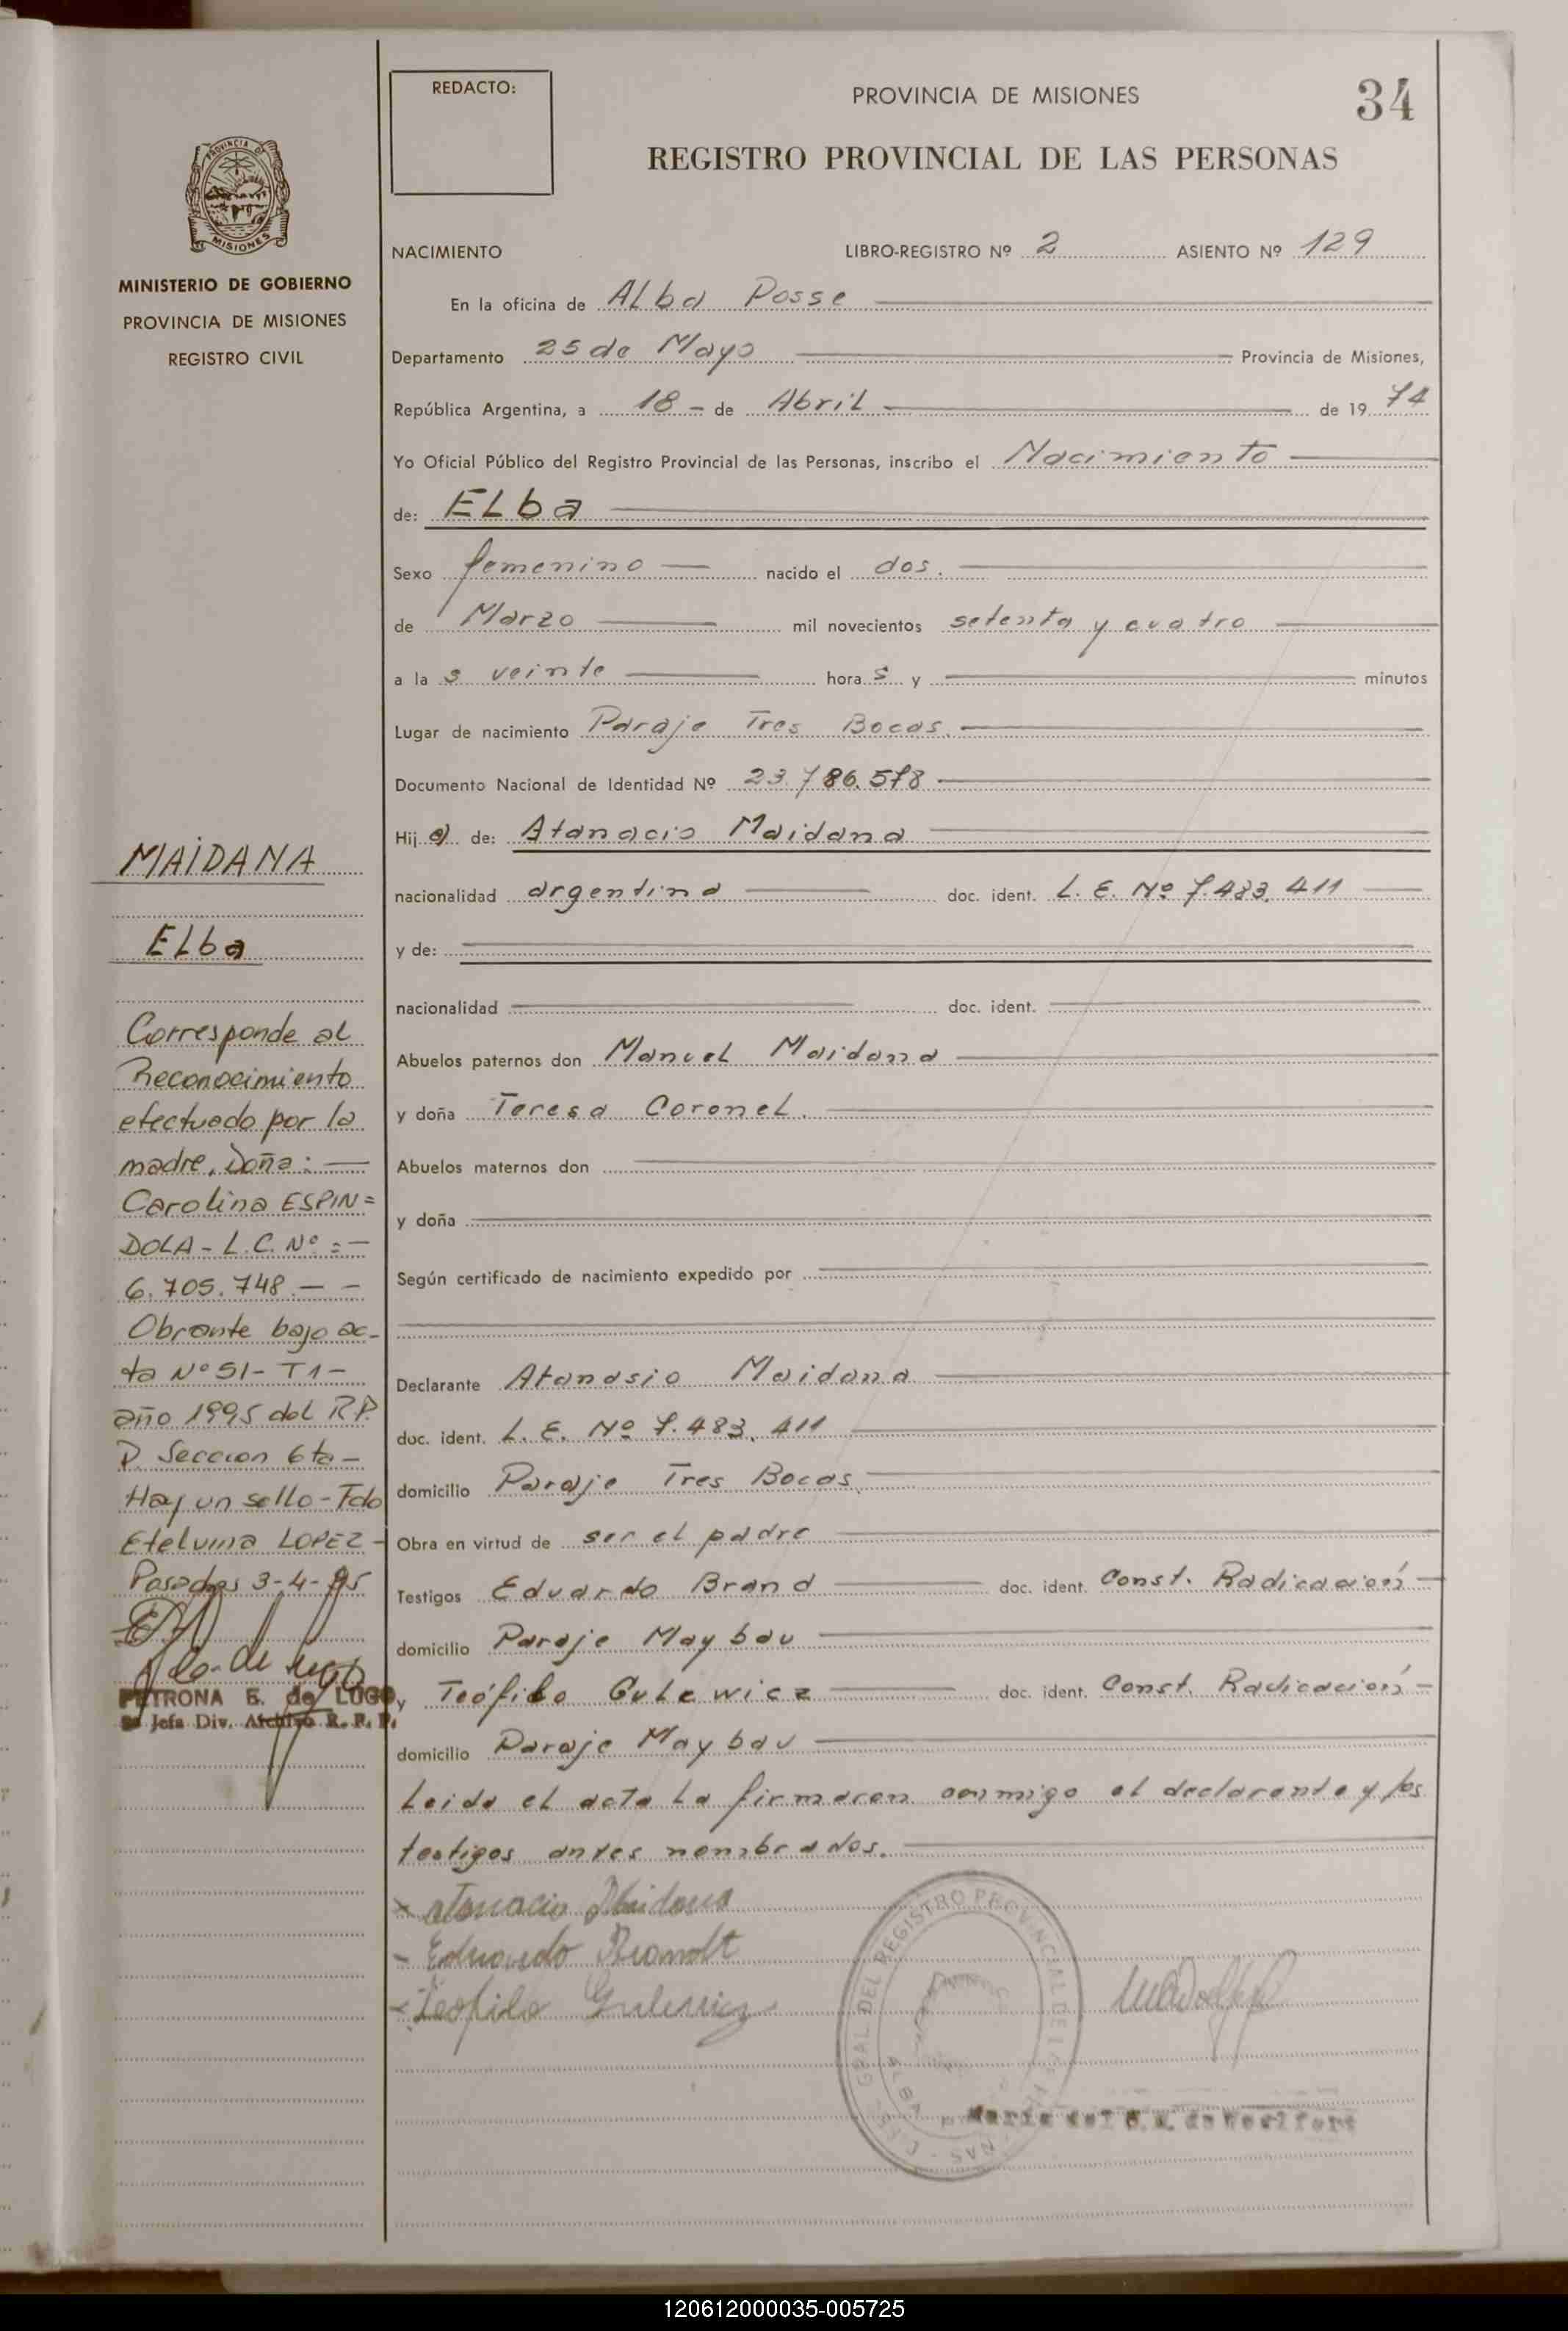 34
REDACTO:
PROVINCIA DE MISIONES
REGISTRO PROVINCIAL DE LAS PERSONAS
PROVINCIA DE
MISIONES
MINISTERIO DE GOBIERNO
PROVINCIA DE MISIONES
REGISTRO CIVIL
NACIMIENTO LIBRO-REGISTRO Nº 2 ASIENTO Nº 129
En la oficina de ALba Posse
Departamento 25 de Mayo Provincia de Misiones,
República Argentina, a 18 - de Abril de 19 74
Yo Oficial Público del Registro Provincial de las Personas, inscribo el Nacimiento
de: ELba
Sexo femenino nacido el dos.
de Marzo mil novecientos setenta y cuatro
a la s veinte hora s y minutos
Lugar de nacimiento Paraje Tres Bocas.
Documento Nacional de Identidad Nº 23.786.578
Hij a de: Atanacio Maidana
nacionalidad argentina doc. ident. L. E. Nº 7.483.411
y de:
nacionalidad doc. ident.
Abuelos paternos don Manuel Maidana
y doña Teresa Coronel.
Abuelos maternos don
y doña
Según certificado de nacimiento expedido por
Declarante Atanasio Maidana
doc. ident. L. E. Nº 7.483.411
domicilio Paraje Tres Bocas.
Obra en virtud de ser el padre
Testigos Eduardo Brand doc. ident. Const. Radicación
domicilio Paraje Maybau
y Teófilo Gulewicz doc. ident. Const. Radicación -
domicilio Paraje Maybau
Leida el acta la firmaron conmigo el declarante y los
testigos antes nombrados.
x atanacio Maidana
- Eduardo Brandt
- Teofilo Gulewicz
GRAL DEL REGISTRO PROVINCIAL DE
ALBA
Maria del
MAIDANA
ELba
Corresponde al
Reconocimiento
efectuado por la
madre, Doña: -
Carolina ESPIN=
DOLA - L.C. Nº = -
6.705.748. - -
Obrante bajo ac-
ta Nº 51 - T1 -
año 1995 del R.P.
P. Seccion 6ta -
Hay un sello - Fdo
Etelvina LOPEZ -
Posadas 3-4-95
PETRONA E. de LUGO
Jefa Div. Archivo R. P. P.
120612000035-005725